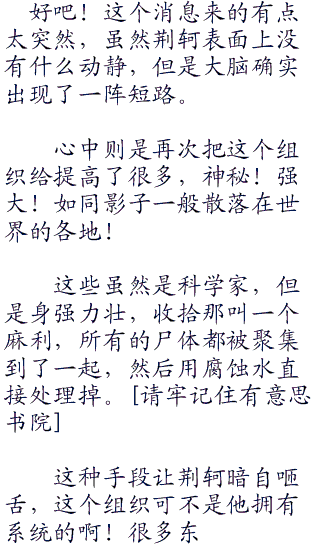 好吧！这个消息来的有点
太突然，虽然荆轲表面上没
有什么动静，但是大脑确实
出现了一阵短路。
心中则是再次把这个组
织给提高了很多，神秘！强
大！如同影子一般散落在世
界的各地！
这些虽然是科学家，但
是身强力壮，收拾那叫一个
麻利，所有的尸体都被聚集
到了一起，然后用腐蚀水直
接处理掉。[请牢记住有意思
书院]
这种手段让荆轲暗自咂
舌，这个组织可不是他拥有
系统的啊！很多东